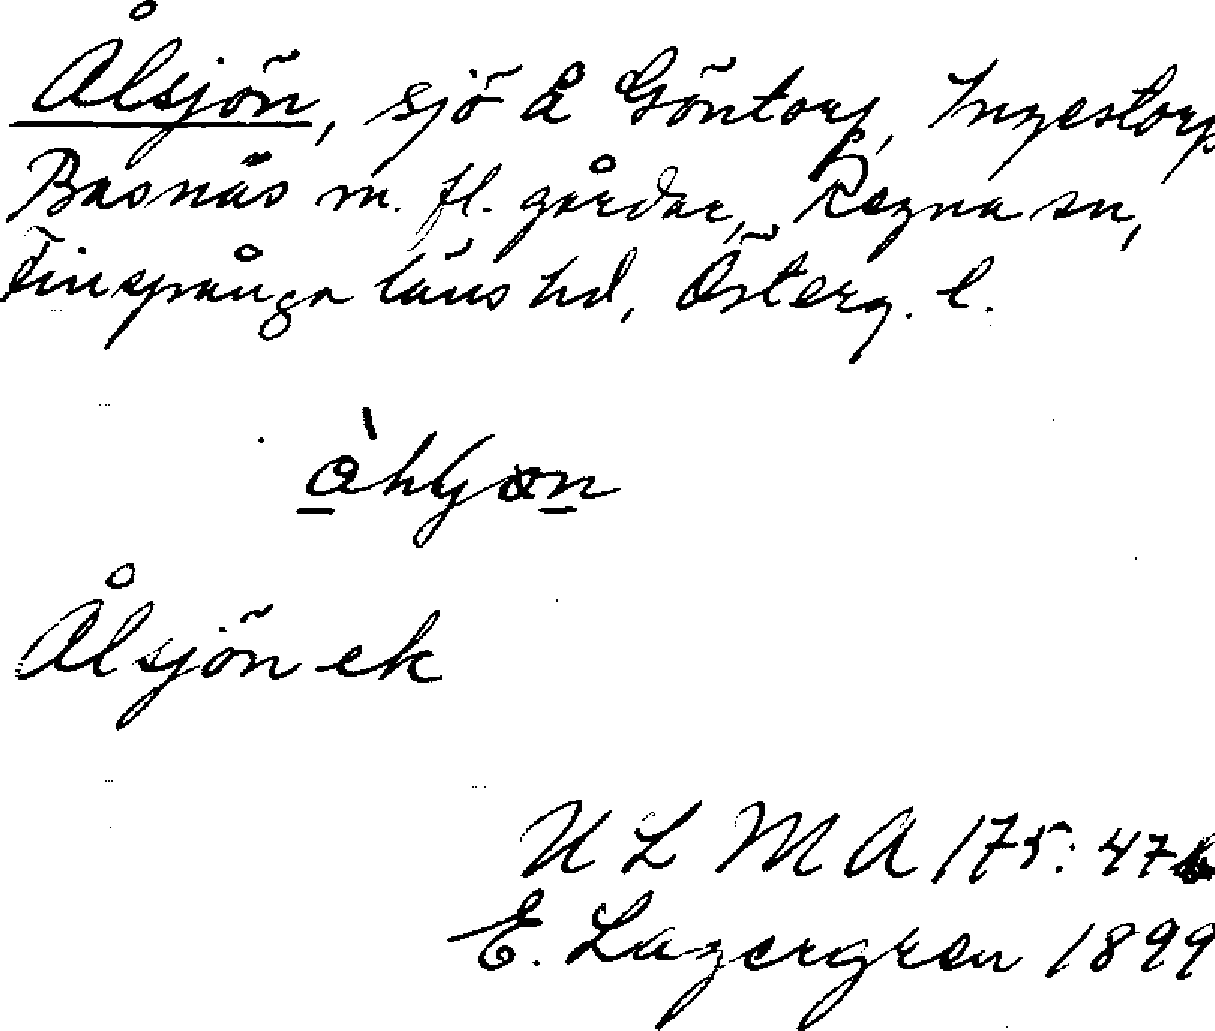 Ålsjön, sjö å Göntorp, Ingestorp
Basnäs m. fl. gårdar, Regna sn,
Finspånga läns hd, Österg. l.
Ålsjön ek
ULMA 175: 47
E. Lagergren 1899